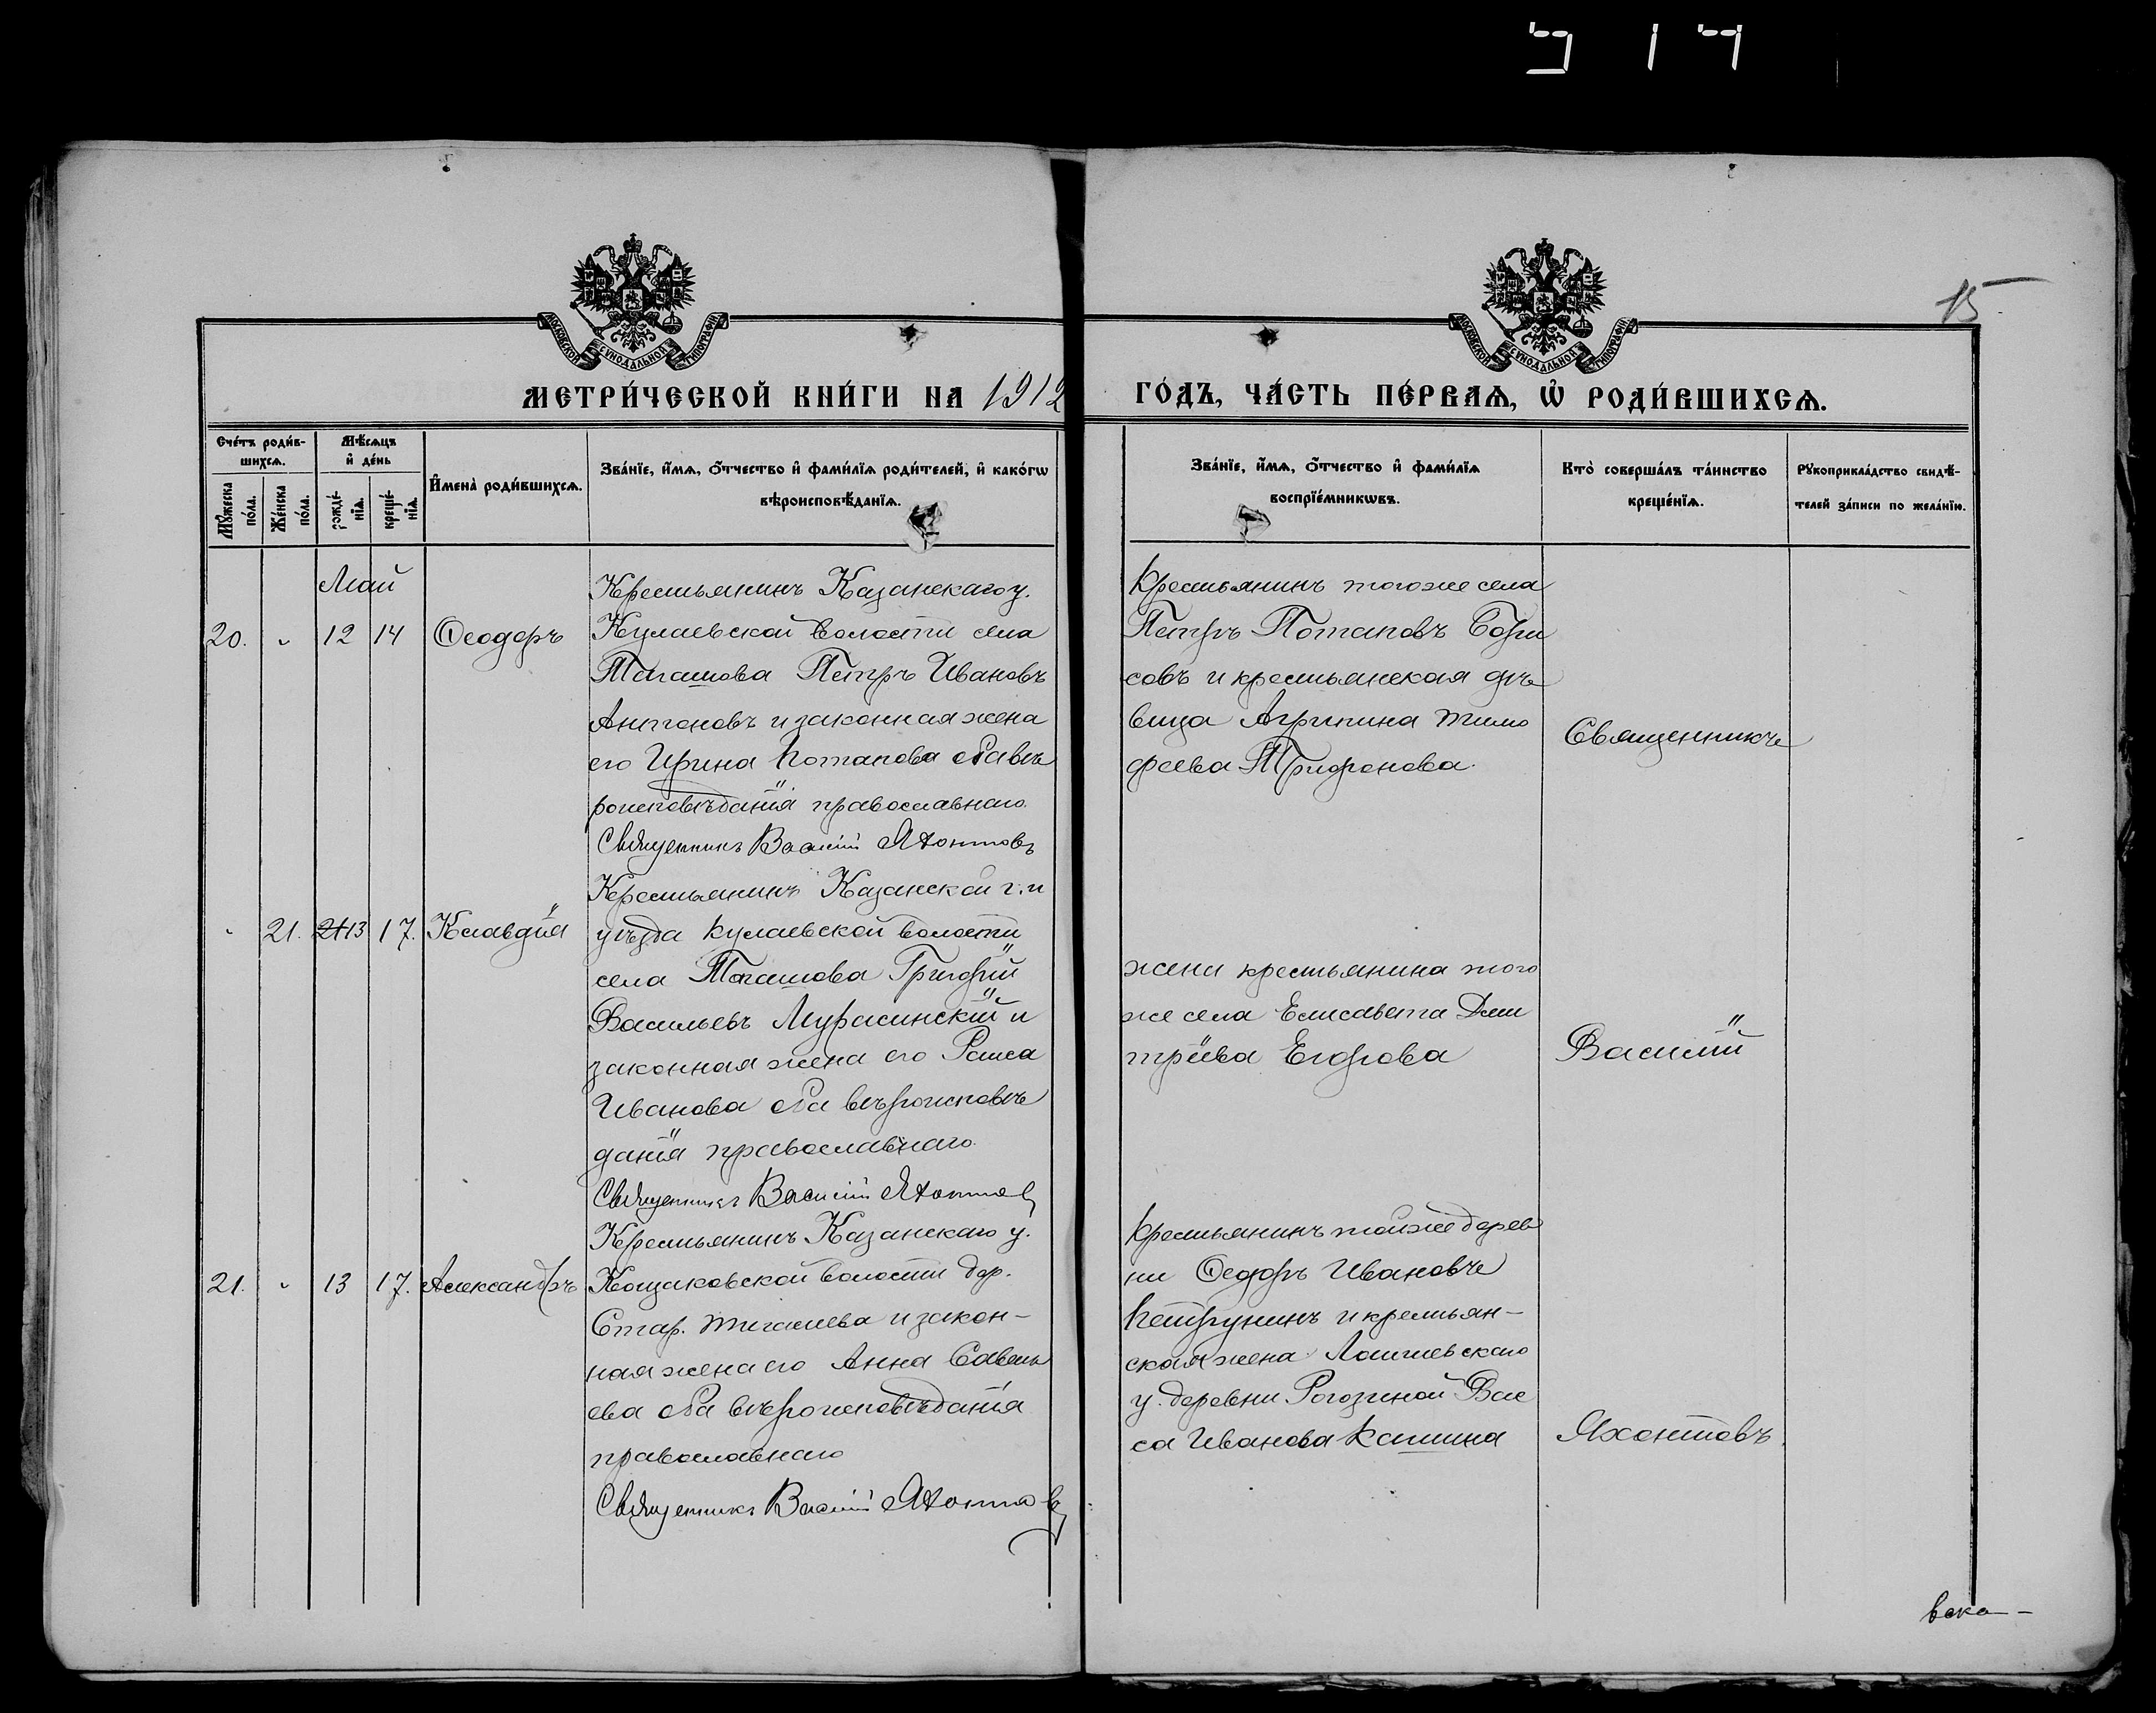 15
МОСКОВСКОЙ СѴНОДАЛЬНОЙ ТИПОГРАФІИ
МОСКОВСКОЙ СѴНОДАЛЬНОЙ ТИПОГРАФІИ
МЕТРИ́ЧЕСКОЙ КНИ́ГИ НА 1912 ГО́ДЪ, ЧА́СТЬ ПЕ́РВАѦ, Ѡ҆ РОДИ́ВШИХСѦ.
Сче́тъ роди́в-
шихсѧ.
Му́жеска по́ла.
Же́нска по́ла.
Мѣ́сѧцъ
и҆ де́нь
рожде́-
нїѧ.
креще́-
нїѧ.
И҆мена̀ роди́вшихсѧ.
Зва́нїе, и҆́мѧ, ѻ҆́тчество и҆ фами́лїѧ роди́телей, и҆ како́гѡ
вѣроисповѣ́данїѧ.
Зва́нїе, и҆́мѧ, ѻ҆́тчество и҆ фами́лїѧ
воспрїе́мникѡвъ.
Кто̀ соверша́лъ та́инство
креще́нїѧ.
Рꙋкоприкла́дство свидѣ́-
телей за́писи по жела́нїю.
Май
20. " 12 14 Ѳеодоръ
Крестьянинъ Казанскаго у.
Кулаевской волости села
Тагашова Петръ Ивановъ
Антоновъ и законная жена
его Ирина Потапова оба вѣ
роисповѣданія православнаго
Священникъ Василій Яхонтовъ
Крестьянинъ тогоже села
Петръ Потаповъ Бори
совъ и крестьянская дѣ
вица Агрипина Тимо
феева Трифонова.
Священникъ
" 21. 21 13 17. Клавдія
Крестьянинъ Казанской г. и
уѣзда Кулаевской волости
села Тагашова Григорій
Васильевъ Мурасинскій и
законная жена его Раиса
Иванова оба вѣроисповѣ
данія православнаго.
Священникъ Василій Яхонтовъ
жена крестьянина того
же села Елисавета Дми
тріева Егорова
Василій
21. " 13 17. Александръ
Крестьянинъ Казанскаго у.
Кощаковской волости дер.
Стар. Тигашева и закон-
ная жена его Анна Савель
ева оба вѣроисповѣданія
православнаго
Священникъ Василій Яхонтовъ
Крестьянинъ тойже дерев
ни Ѳедоръ Ивановъ
Петрунинъ и крестьян-
ская жена Лаишевскаго
у. деревни Рогозиной Вас
са Иванова Кашина
Яхонтовъ.